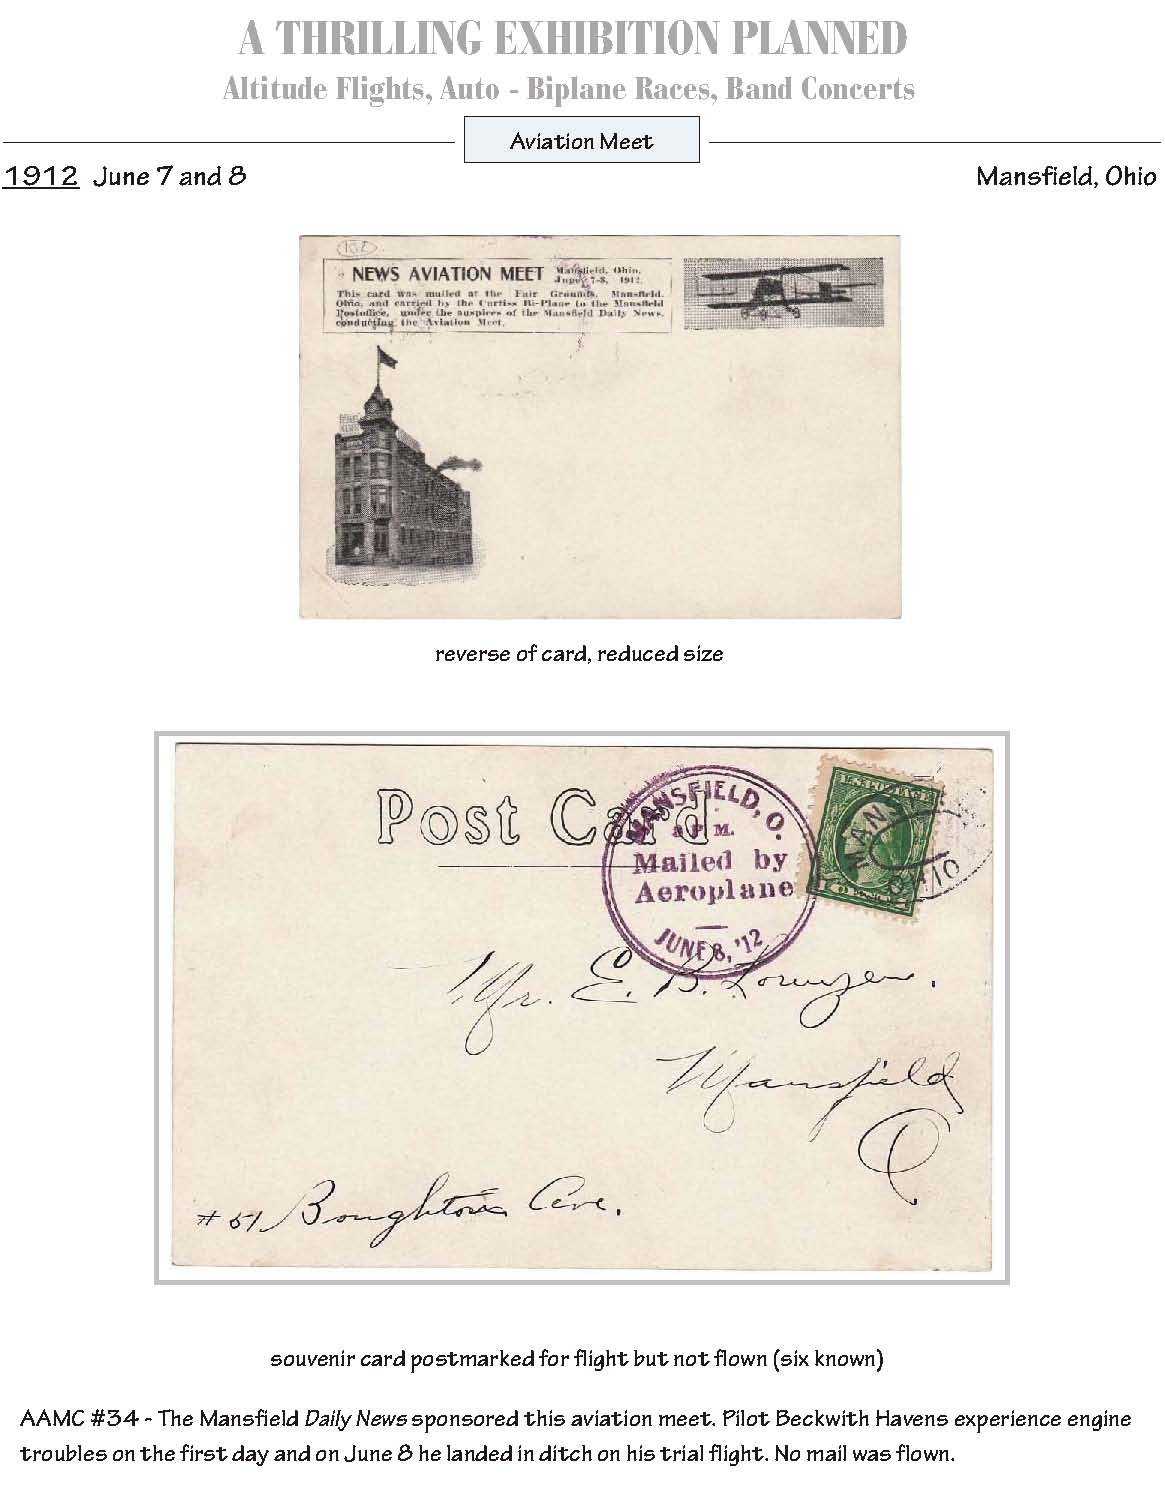 A THRILLING EXHIBITION PLANNED
Altitude Flights, Auto - Biplane Races, Band Concerts
Aviation Meet
1912 June 7 and 8
Mansfield, Ohio
102
NEWS AVIATION MEET
Mansfield, Ohio,
June 7-8, 1912.
This card was mailed at the Fair Grounds, Mansfield,
Ohio, and carried by the Curtiss Bi-Plane to the Mansfield
Postoffice, under the auspices of the Mansfield Daily News,
conducting the Aviation Meet.
reverse of card, reduced size
Post Card
MANSFIELD, O.
P.M.
Mailed by
Aeroplane
JUNE 8, '12
U.S. POSTAGE
MANS
OHIO
Mr. E. B. Lorenzen.
Mansfield
O
# 51 Boughton Ave.
souvenir card postmarked for flight but not flown (six known)
AAMC #34 - The Mansfield Daily News sponsored this aviation meet. Pilot Beckwith Havens experience engine
troubles on the first day and on June 8 he landed in ditch on his trial flight. No mail was flown.